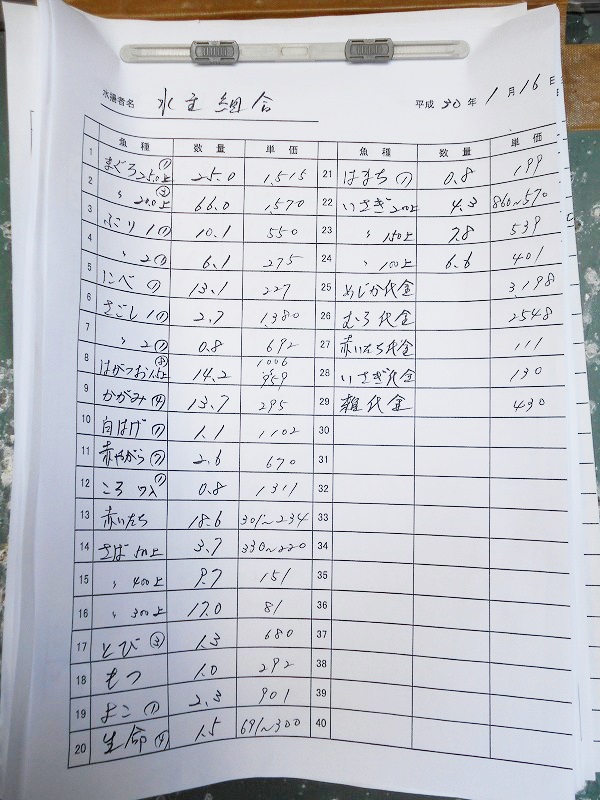 水揚者名 水主組合
平成 30 年 1 月 16 日
魚種 数量 単価
1 まぐろ 25.0上 ⑦ 25.0 1,515
2 〃 20.0上 66.0 1,570
3 ぶり 1 ⑦ 10.1 550
4 〃 2 ⑦ 6.1 275
5 にべ ⑦ 13.1 227
6 さごし 1 ⑦ 2.7 1,380
7 〃 2 ⑦ 0.8 692
8 はがつお 1.5上 14.2 1006 959
9 かがみ 13.7 295
10 白はげ ⑦ 1.1 1102
11 赤やがら ⑦ 2.6 670
12 ころ ⑦ 0.8 1311
13 赤いたち 18.6 301〜234
14 さば 500上 3.7 330〜220
15 〃 400上 9.7 151
16 〃 300上 17.0 81
17 とび 1.3 680
18 もつ 1.0 292
19 よこ ⑦ 2.3 901
20 生命 1.5 691〜300
魚種 数量 単価
21 はまち ⑦ 0.8 199
22 いさぎ 200上 4.3 860〜570
23 〃 150上 7.8 539
24 〃 100上 6.6 401
25 めじか代金 3,198
26 むろ代金 2548
27 赤いたち代金 111
28 いさぎ代金 130
29 雑代金 430
30
31
32
33
34
35
36
37
38
39
40